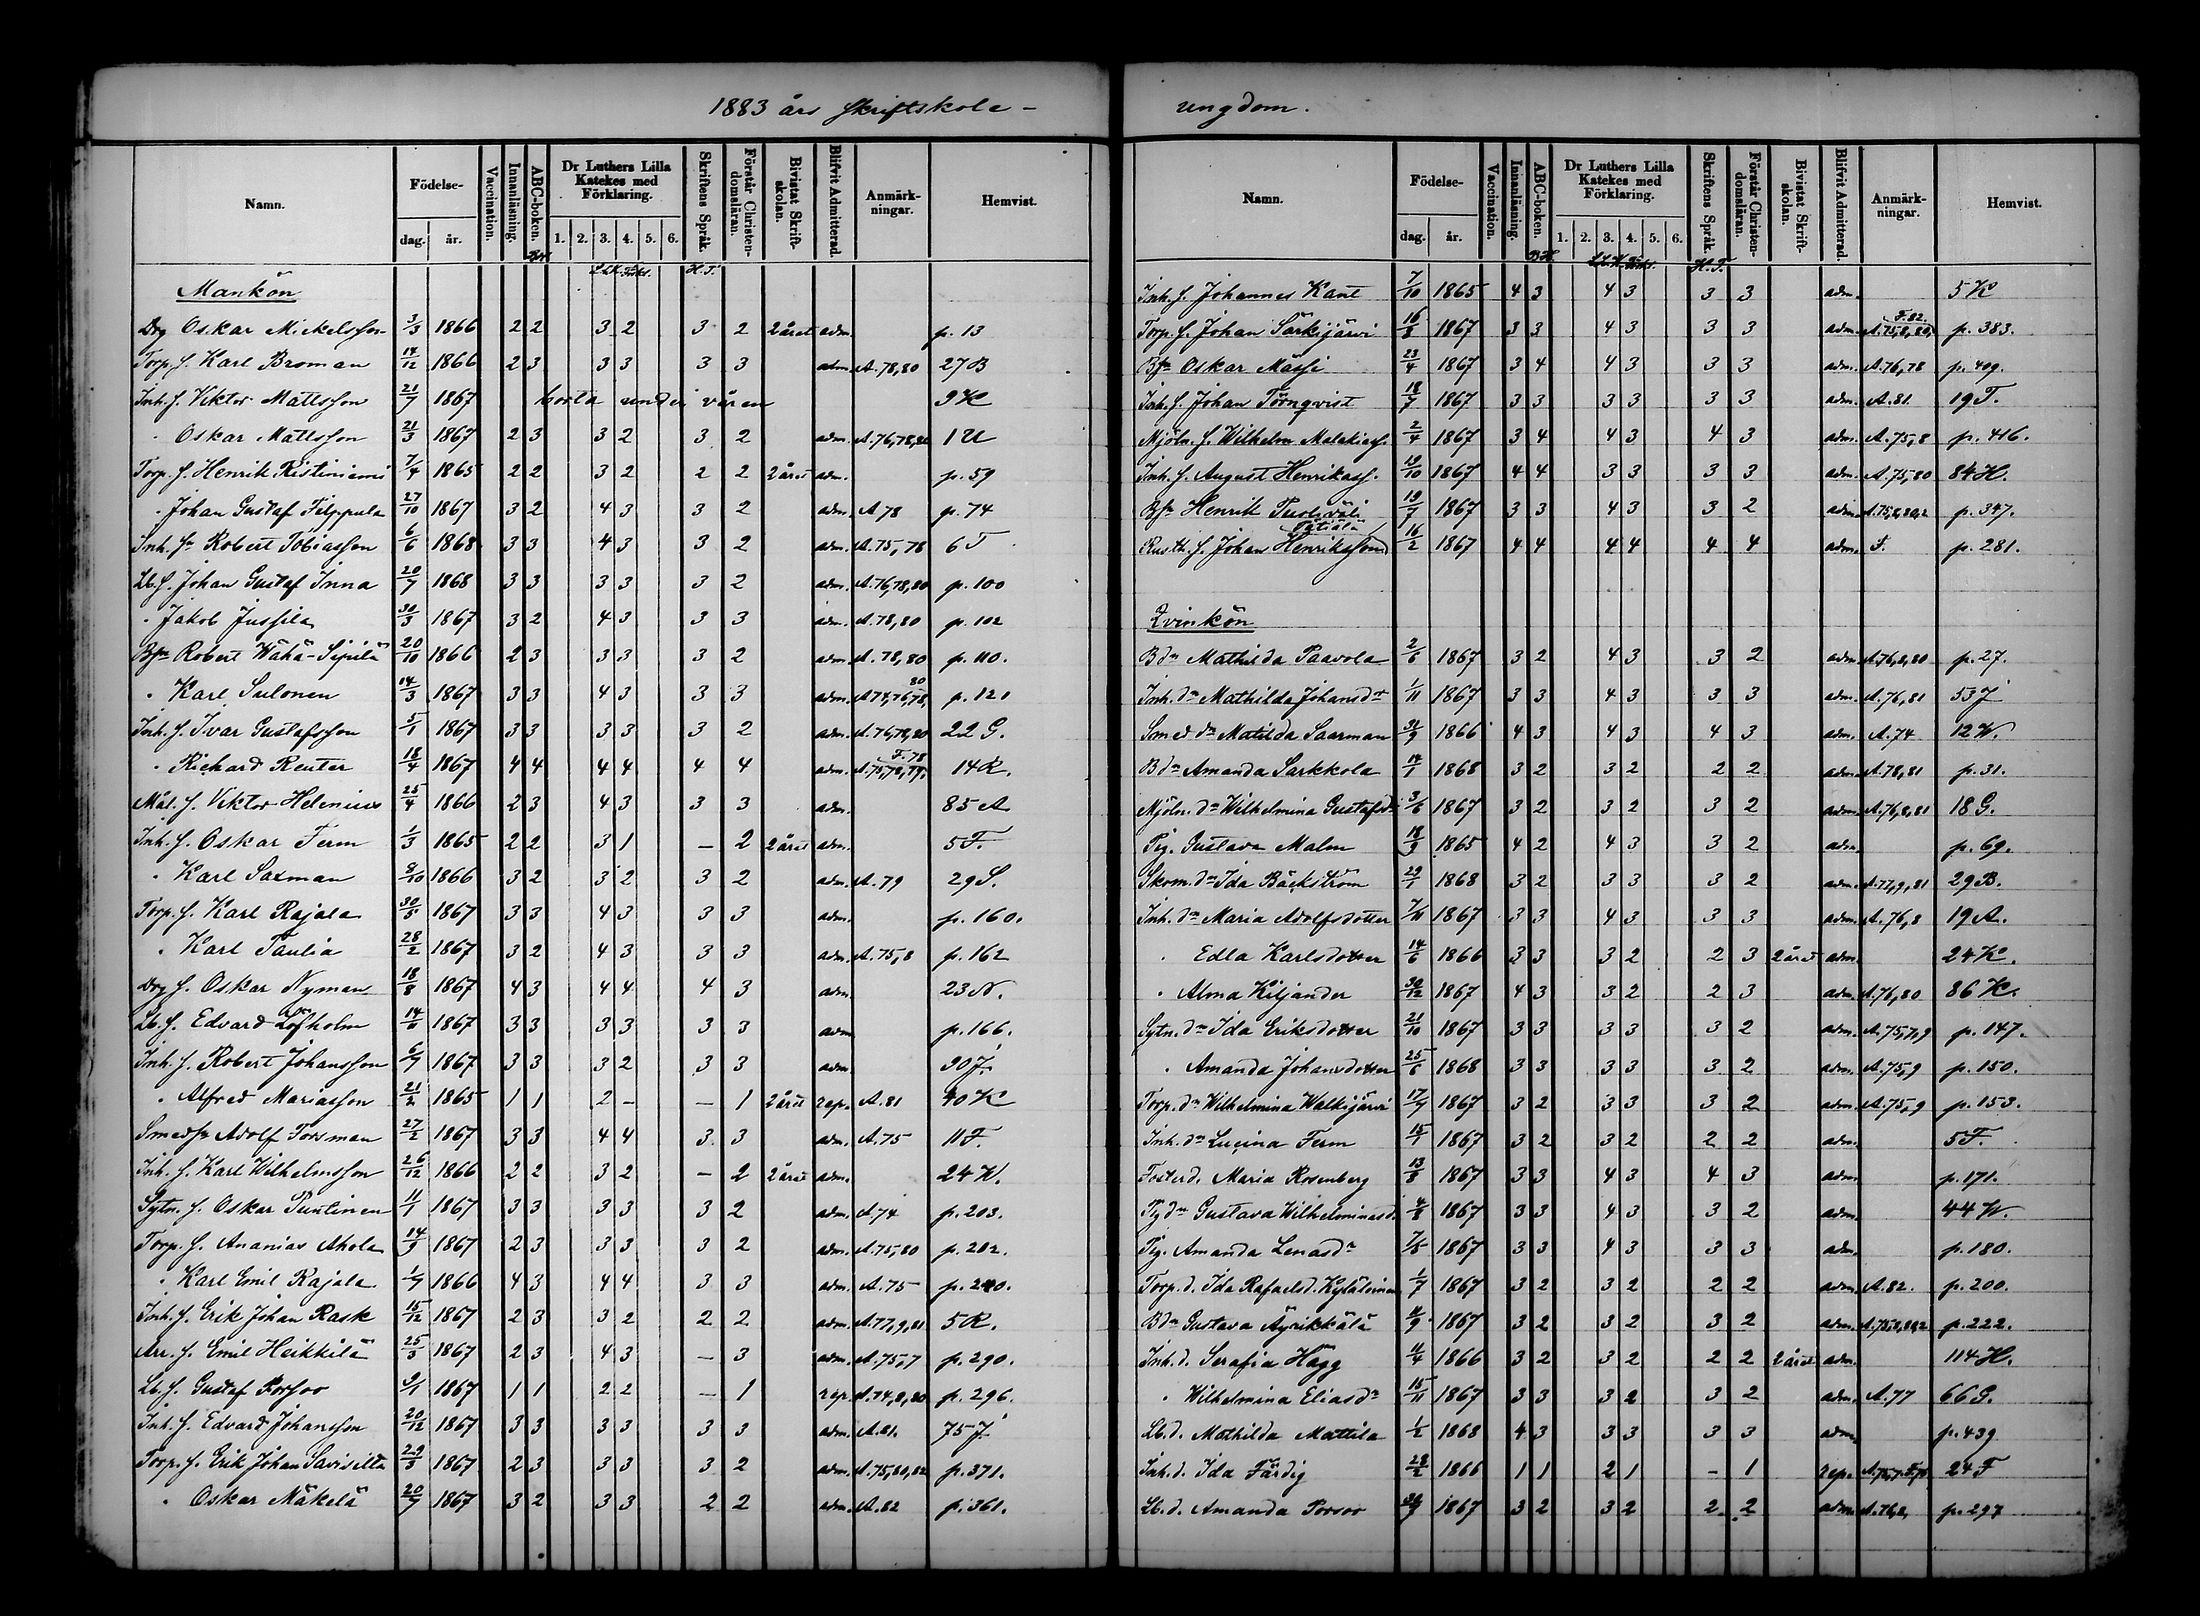 1883 års Skriftskole- ungdom.
Namn. Födelse- dag. år. Vaccination. Innanläsning. ABC-boken. Dr Luthers Lilla Katekes med Förklaring. 1. 2. 3. 4. 5. 6. Skriftens Språk. Förstår Christendomsläran. Bivistat Skriftskolan. Blifvit Admitterad. Anmärkningar. Hemvist.
Mankön
Drg Oskar Mickelsson 3/3 1866 2 2 3 2 3 2 2 året adm. p. 13
Torp. s. Karl Broman 14/12 1866 2 3 3 3 3 3 adm. A. 78, 80 27 B
Inh. s. Viktor Mattsson 21/7 1867 borta under våren 9 K
" Oskar Mattsson 21/3 1867 2 3 3 2 3 2 adm. A. 76, 78, 1 U
Torp. s. Henrik Ristiniemi 7/4 1865 2 2 3 2 2 2 2 året adm. p. 59
" Johan Gustaf Filppula 27/10 1867 3 2 4 3 3 2 adm. A 78 p. 74
Inh. sn Robert Tobiasson 6/6 1868 3 3 4 3 3 2 adm. A. 75, 78 6 T
Lb. s. Johan Gustaf Inna 20/7 1868 3 3 3 3 3 2 adm. A. 76, 78, 80 p. 100
" Jakob Jussila 30/3 1867 3 2 4 3 3 3 adm. A. 78, 80 p. 102
Bsn Robert Wähä-Sipilä 20/10 1866 2 3 3 3 3 2 adm. A. 78, 80 p. 110.
" Karl Sulonen 14/3 1867 3 3 4 3 3 3 adm. A 74, 76, 78, 80 p. 121
Inh. s. Ivar Gustafsson 5/1 1867 3 3 3 3 3 2 adm. A. 76, 78, 80 22 G.
" Richard Reuter 18/4 1867 4 4 4 4 4 4 adm. A. 75, 78, 79. F. 78 14 R.
Mål. s. Viktor Helenius 25/4 1866 2 3 4 3 3 3 adm. 85 A
Inh. s. Oskar Ferm 1/3 1865 2 2 3 1 – 2 2 året adm. 5 F.
" Karl Saxman 9/10 1866 3 2 3 2 3 2 adm. A. 79 29 S.
Torp. s. Karl Rajala 30/5 1867 3 3 4 3 3 3 adm. p. 160.
" Karl Paulia 28/2 1867 3 2 4 3 3 3 adm. A. 75, 8 p. 162
Drg s. Oskar Nyman 18/8 1867 4 3 4 4 4 3 adm. 23 N.
Lb. s. Edvard Löfholm 14/6 1867 3 3 3 3 3 3 adm p. 166.
Inh. s. Robert Johansson 6/7 1867 3 3 3 2 3 3 adm. 90 J.
" Alfred Mariasson 21/2 1865 1 1 2 – – 1 2 året rep. A. 81 40 K
Smeds sn Adolf Forsman 27/2 1867 3 3 4 4 3 3 adm. A. 75 11 F.
Inh. s. Karl Wilhelmsson 26/12 1866 2 2 3 2 – 2 2 året adm. 24 W.
Sytn. s. Oskar Puntinen 11/1 1867 3 3 3 3 3 2 adm. A. 74 p. 203.
Torp. s. Ananias Ahola 14/9 1867 2 3 3 3 3 2 adm. A. 75, 80 p. 202.
" Karl Emil Rajala 1/7 1866 4 3 4 4 3 3 adm. A. 75 p. 240.
Inh. s. Erik Johan Rask 15/12 1867 2 3 3 2 2 2 adm. A. 77, 9, 81 5 R.
Arr. s. Emil Heikkilä 25/3 1867 2 3 4 3 – 3 adm. A. 75, 7 p. 290.
Lb. s. Gustaf Porsoo 9/1 1867 1 1 2 2 – 1 rep. A. 74, 8, 80 p. 296.
Inh. s. Edvard Johansson 20/12 1867 3 3 3 3 3 3 adm. A. 81. 75 J
Torp. s. Erik Johan Savisilta 29/3 1867 2 3 3 3 3 2 adm. A. 75, 80, 82 p. 371.
" Oskar Mäkelä 20/7 1867 3 2 3 3 2 2 adm. A. 82 p. 361.
Namn. Födelse- dag. år. Vaccination. Innanläsning. ABC-boken. Dr Luthers Lilla Katekes med Förklaring. 1. 2. 3. 4. 5. 6. Skriftens Språk. Förstår Christendomsläran. Bivistat Skriftskolan. Blifvit Admitterad. Anmärkningar. Hemvist.
Inh. s. Johannes Kant 7/10 1865 4 3 4 3 3 3 adm. 5 K
Torp. s. Johan Särkijärvi 16/8 1867 3 3 4 3 3 3 adm. A. 75, 8, 80, F. 82. p. 383.
Bsn Oskar Mässi 23/4 1867 3 4 4 3 3 3 adm. A. 76, 78 p. 409.
Inh. s. Johan Törnqvist 18/7 1867 3 3 3 3 3 3 adm. A. 81. 19 T.
Mjöln. s. Wilhelm Malakiass. 2/4 1867 3 4 4 3 4 3 adm. A. 75, 8 p. 416.
Inh. s. August Henrikass. 19/10 1867 4 4 3 3 3 3 adm. A. 75, 80 84 H.
Bsn Henrik 19/7 1867 3 3 4 3 3 2 adm. A. 75, 8, 80, 2 p. 347.
Rusth. s. Johan Henriksson 16/2 1867 4 4 4 4 4 4 adm. F. p. 281.
Qvinkön
Bdr Mathilda Paavola 2/6 1867 3 2 4 3 3 2 adm. A. 76, 8, 80 p. 27.
Inh. dr Mathilda Johansdr 1/11 1867 3 3 4 3 3 3 adm. A. 76, 81 53 J
Smed dr Matilda Saarman 31/9 1866 4 3 4 3 4 3 adm. A. 74 12 W.
Bdr Amanda Sarkkola 14/1 1868 3 2 3 2 2 2 adm. A. 78, 81 p. 31.
Mjöln. dr Wilhelmina Gustafsd. 3/6 1867 3 2 3 2 3 2 adm. A. 76, 8, 81 18 G.
Pig. Gustava Malm 18/9 1865 4 2 4 3 3 2 adm. p. 69.
Skom. dr Ida Bäckström 29/1 1868 3 2 3 3 3 2 adm. A. 77, 9, 81 29 B.
Inh. dr Maria Adolfsdotter 7/11 1867 3 3 4 3 3 3 adm. A. 76, 8 19 A.
" Edla Karlsdotter 14/6 1866 3 3 3 2 2 3 2 året adm. 24 K.
" Alma Kiljander 30/12 1867 4 3 3 2 2 3 adm. A. 76, 80 86 K.
Sytn. dr Ida Eriksdotter 21/10 1867 3 3 3 3 3 2 adm. A. 75, 7, 9 p. 147.
" Amanda Johansdotter 25/6 1868 3 3 3 3 3 2 adm. A. 75, 9 p. 150.
Torp. dr Wilhelmina Walkijärvi 17/7 1867 3 2 3 3 3 2 adm. A. 75, 9 p. 153.
Inh. dr Lucina Ferm 15/1 1867 3 2 3 2 2 2 adm. 5 F.
Fosterd. Maria Rosenberg 13/8 1867 3 3 4 3 4 3 adm. p. 171.
Pigdr Gustava Wilhelminasd. 4/8 1867 3 3 4 3 3 2 adm. 44 W.
Pig. Amanda Lenasdr 7/5 1867 3 3 4 3 3 3 adm. p. 180.
Torp. d. Ida Rafaelsd. 1/7 1867 3 2 3 2 2 2 adm. A. 82. p. 200.
Bdr Gustava Äyrikkälä 11/9 1867 3 2 3 2 3 2 adm. p. 222.
Inh. d. Serafia Hägg 11/4 1866 3 2 3 2 2 2 2 året adm. 114 H.
" Wilhelmina Eliasdr 15/11 1867 3 3 3 2 3 2 adm. A. 77 66 G.
Lb. d. Mathilda Mattila 1/2 1868 4 3 3 3 3 3 adm. p. 439
Inh. d. Ida Färdig 28/2 1866 1 1 2 1 – 1 rep. 24 F
Lb. d. Amanda Porsoo 30/7 1867 3 2 3 2 2 2 adm. A. 76, 8, p. 297